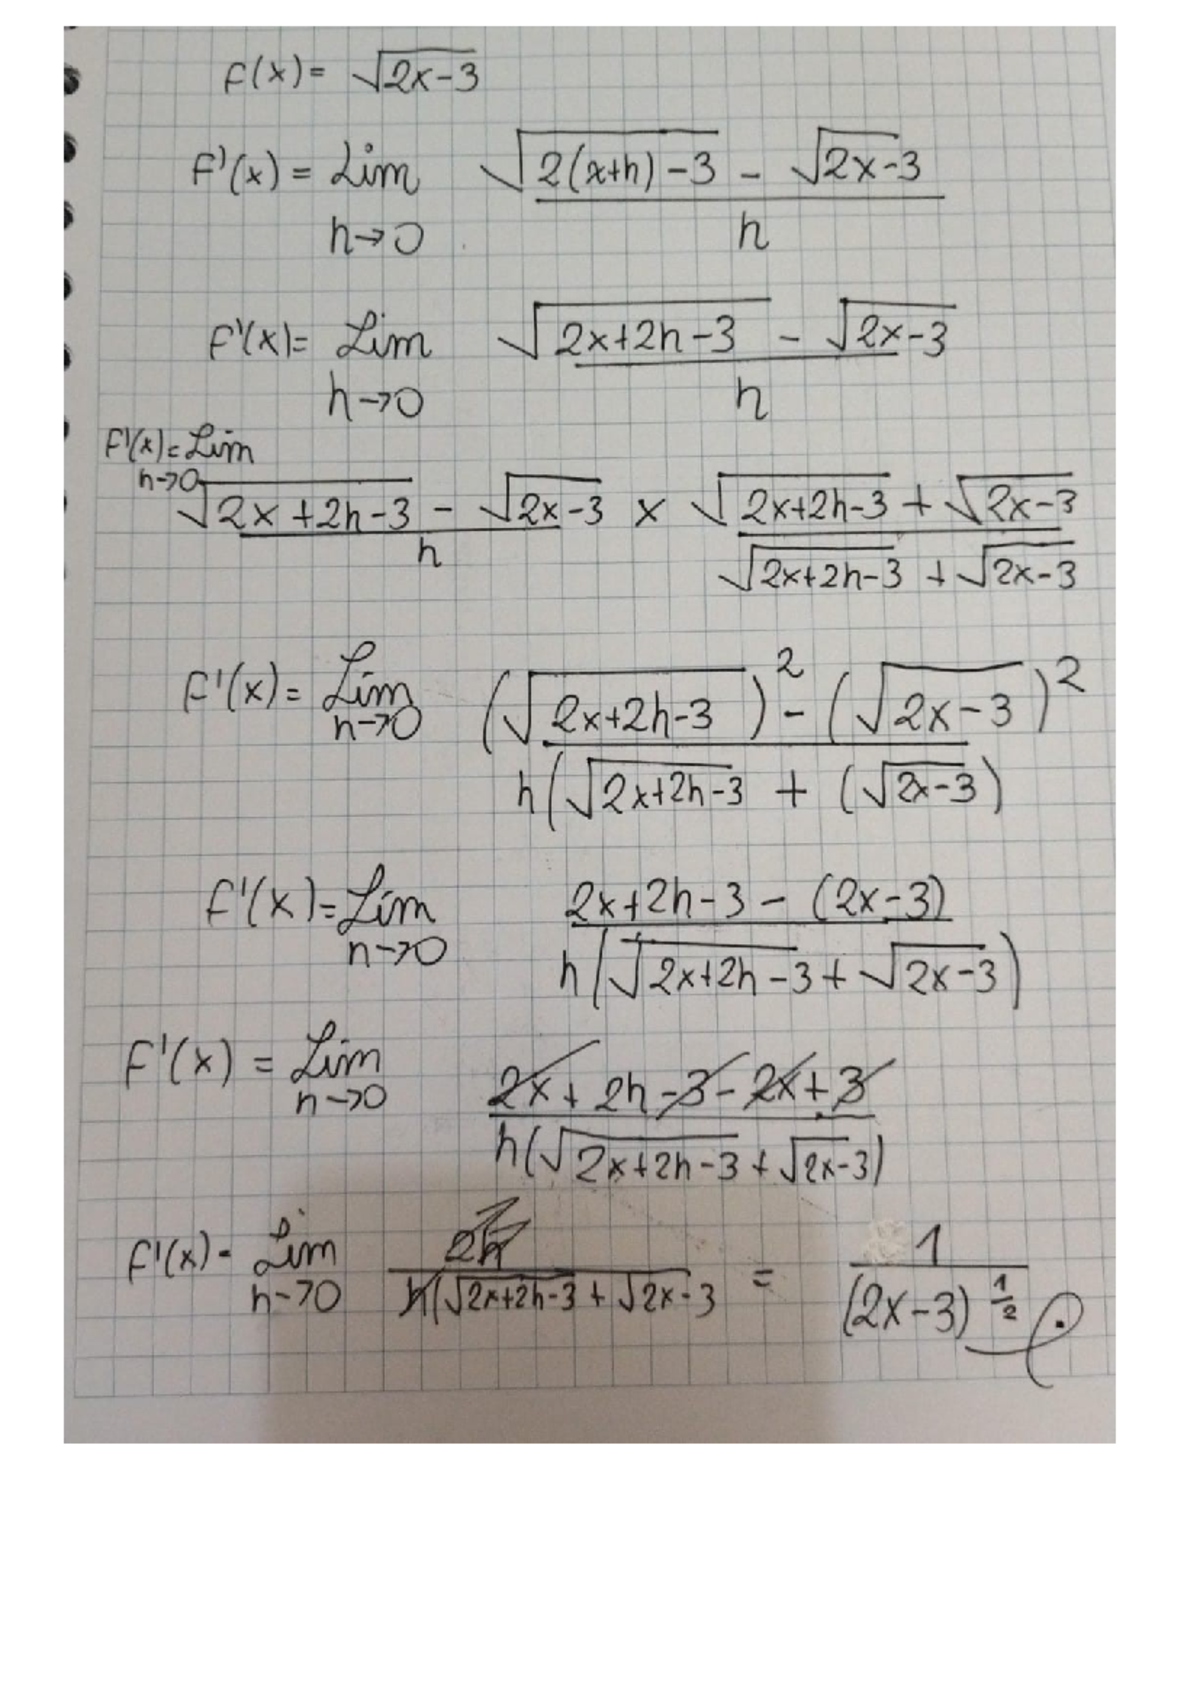 F(x) = √(2x-3)
F'(x) = Lim h→0 (√(2(x+h)-3) - √(2x-3)) / h
F'(x) = Lim h→0 (√(2x+2h-3) - √(2x-3)) / h
F'(x) = Lim h→0
(√(2x+2h-3) - √(2x-3)) / h × (√(2x+2h-3) + √(2x-3)) / (√(2x+2h-3) + √(2x-3))
F'(x) = Lim h→0 ((√(2x+2h-3))² - (√(2x-3))²) / h(√(2x+2h-3) + (√(2x-3))
F'(x) = Lim h→0 (2x+2h-3 - (2x-3)) / h(√(2x+2h-3) + √(2x-3))
F'(x) = Lim h→0 (2x + 2h - 3 - 2x + 3) / h(√(2x+2h-3) + √(2x-3))
F'(x) = Lim h→0 2h / h(√(2x+2h-3) + √(2x-3) = 1 / (2x-3)^(1/2)